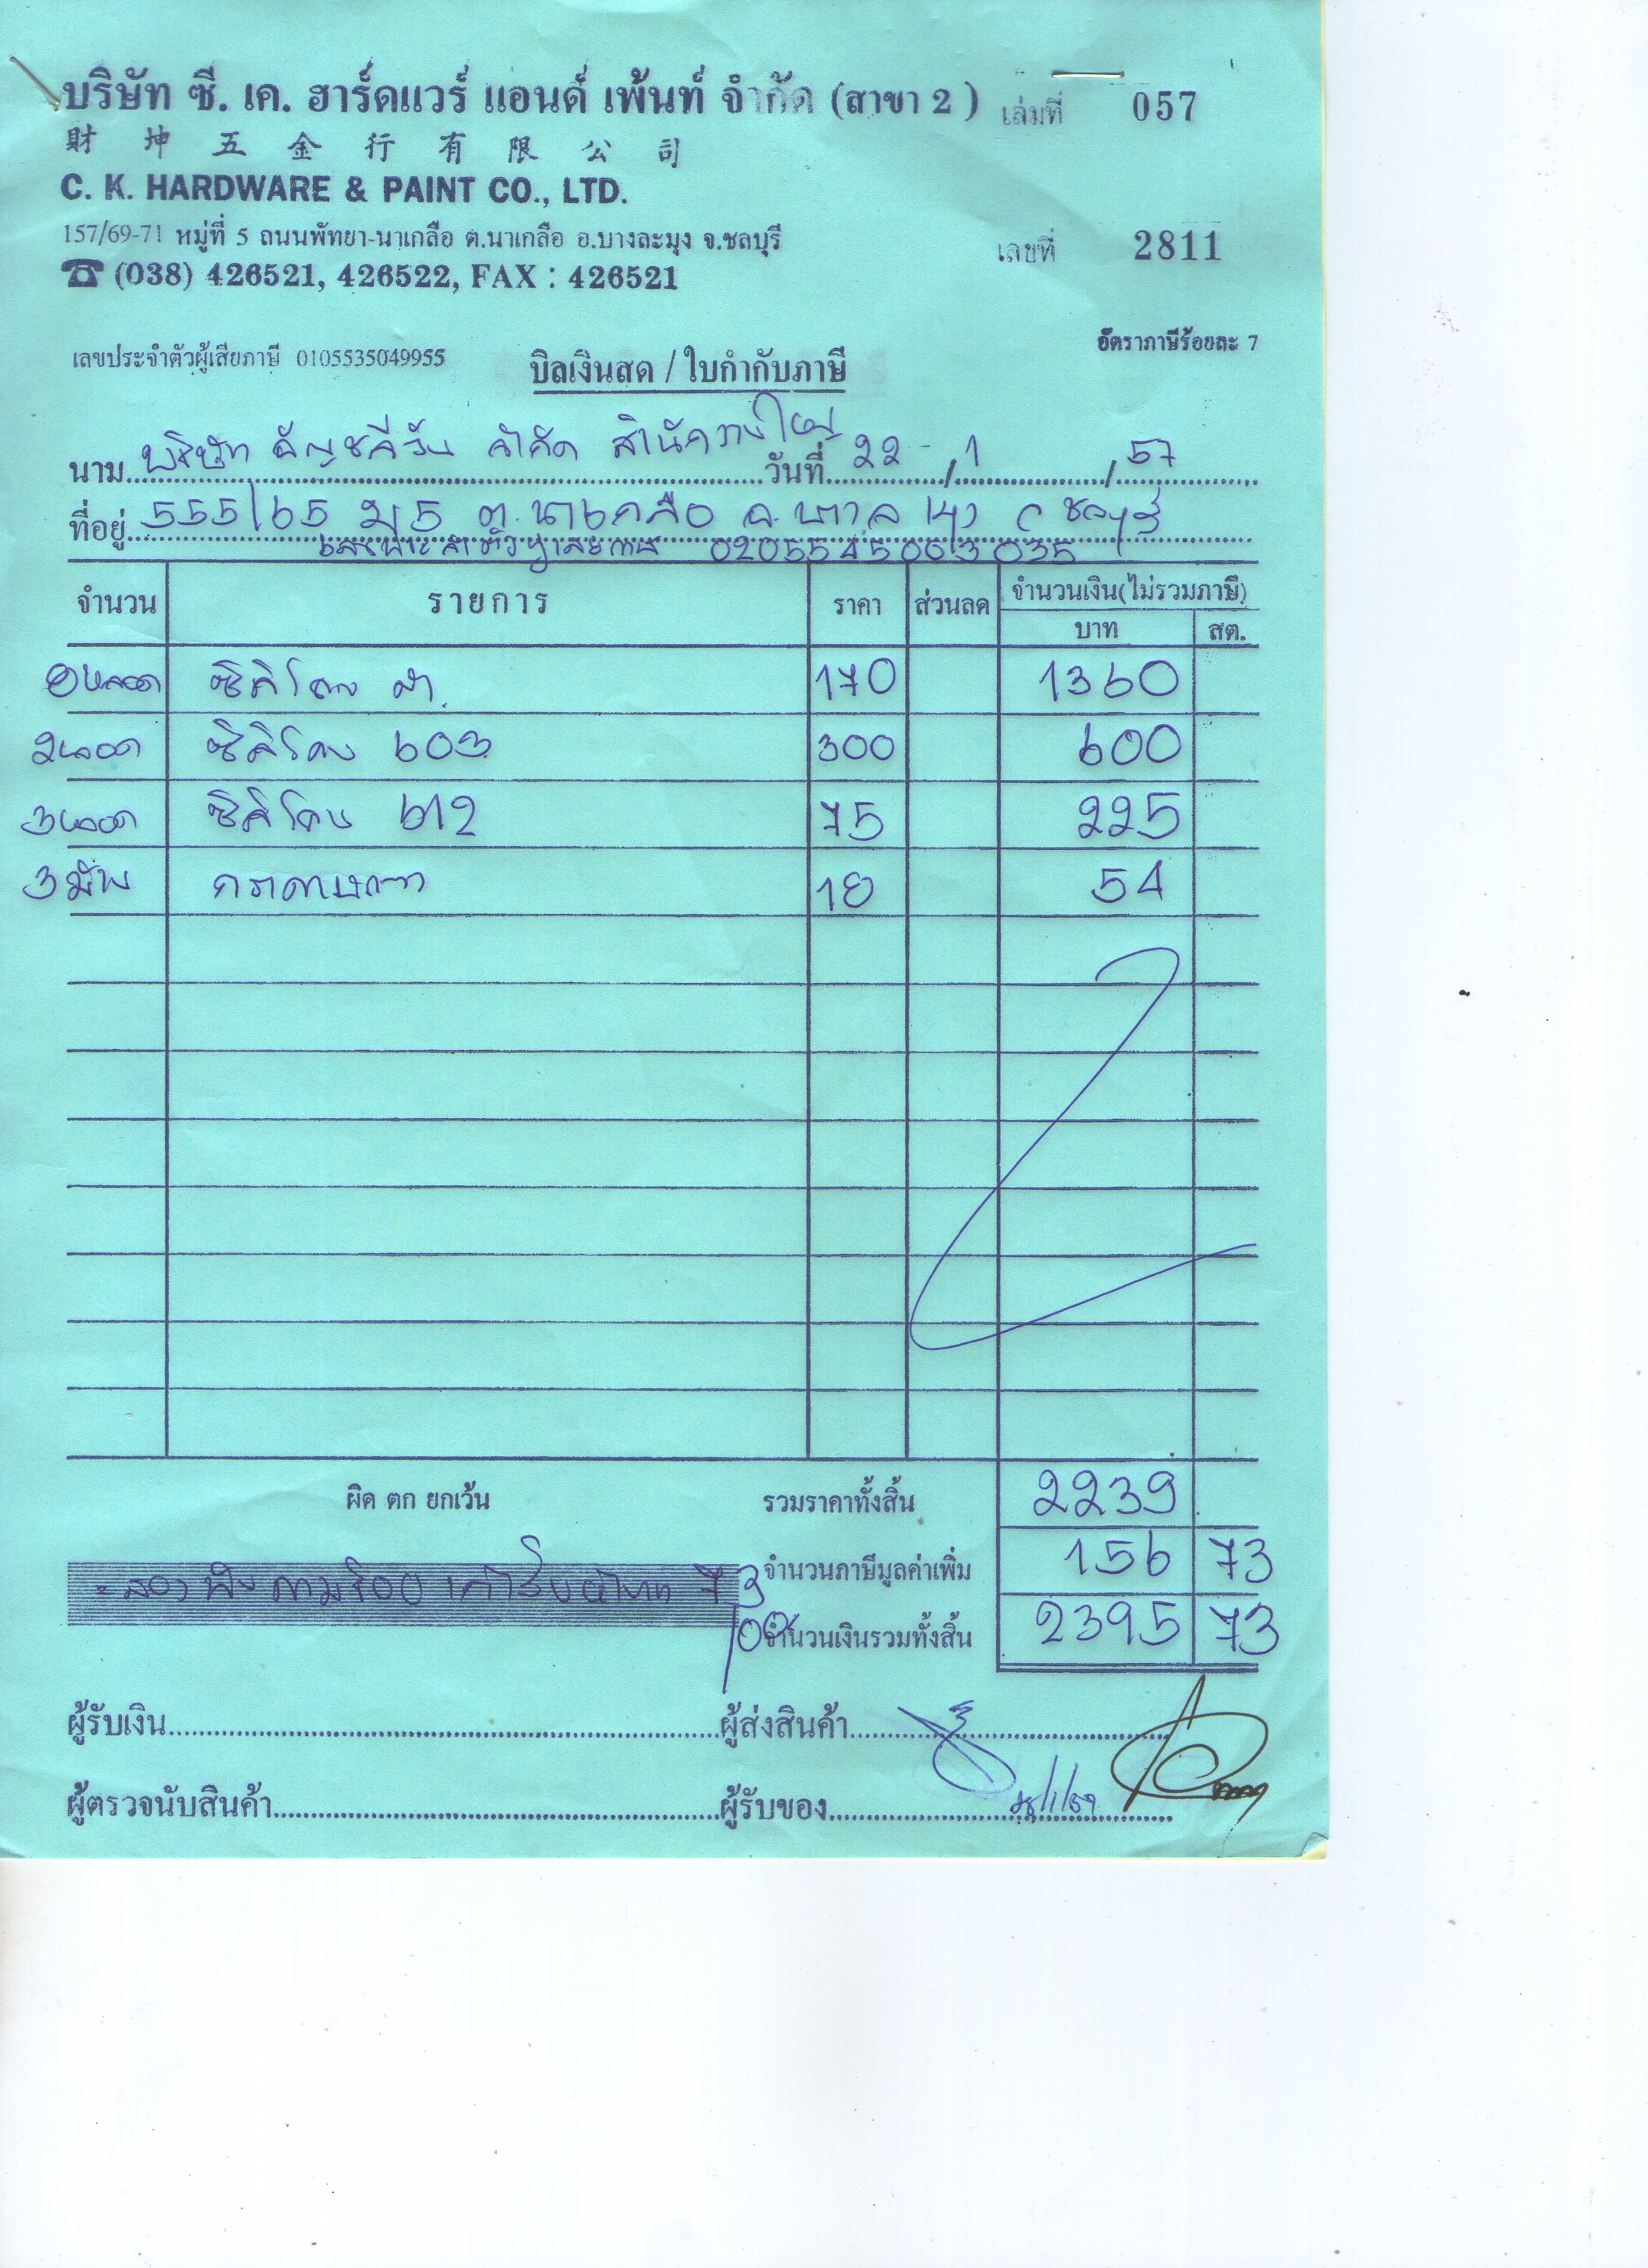 บริษัท ซี. เค. ฮาร์ดแวร์ แอนด์ เพ้นท์ จำกัด (สาขา 2 ) เล่มที่ 057
財 坤 五 金 行 有 限 公 司
C. K. HARDWARE & PAINT CO., LTD.
157/69-71 หมู่ที่ 5 ถนนพัทยา-นาเกลือ ต.นาเกลือ อ.บางละมุง จ.ชลบุรี
เลขที่ 2811
☎ (038) 426521, 426522, FAX : 426521
อัตราภาษีร้อยละ 7
เลขประจำตัวผู้เสียภาษี 0105535049955
บิลเงินสด / ใบกำกับภาษี
นาม บริษัท จำกัด สำนักงานใหญ่ วันที่ 22 / 1 / 57
ที่อยู่ 555/65 ม 5 ต.นาเกลือ อ.บางละมุง จ ชลบุรี
เลขประจำตัวผู้เสียภาษี 0205545003035
จำนวน รายการ ราคา ส่วนลด จำนวนเงิน(ไม่รวมภาษี)
บาท สต.
8หลอด ซิลิโคน ดำ 170 1360
2หลอด ซิลิโคน 603 300 600
3หลอด ซิลิโคน 612 75 225
3ม้วน กระดาษกาว 18 54
ผิด ตก ยกเว้น รวมราคาทั้งสิ้น 2239
จำนวนภาษีมูลค่าเพิ่ม 156 73
สองพันสามร้อยเก้าสิบห้าบาท 73/00
จำนวนเงินรวมทั้งสิ้น 2395 73
ผู้รับเงิน ผู้ส่งสินค้า
ผู้ตรวจนับสินค้า ผู้รับของ